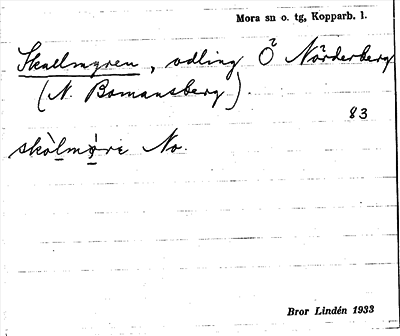 Mora sn o. tg, Kopparb. l.
Skallmyren, odling Ö Nörderberg
(N. Bomansberg).
83
skòlmỳre No.
Bror Lindén 1933